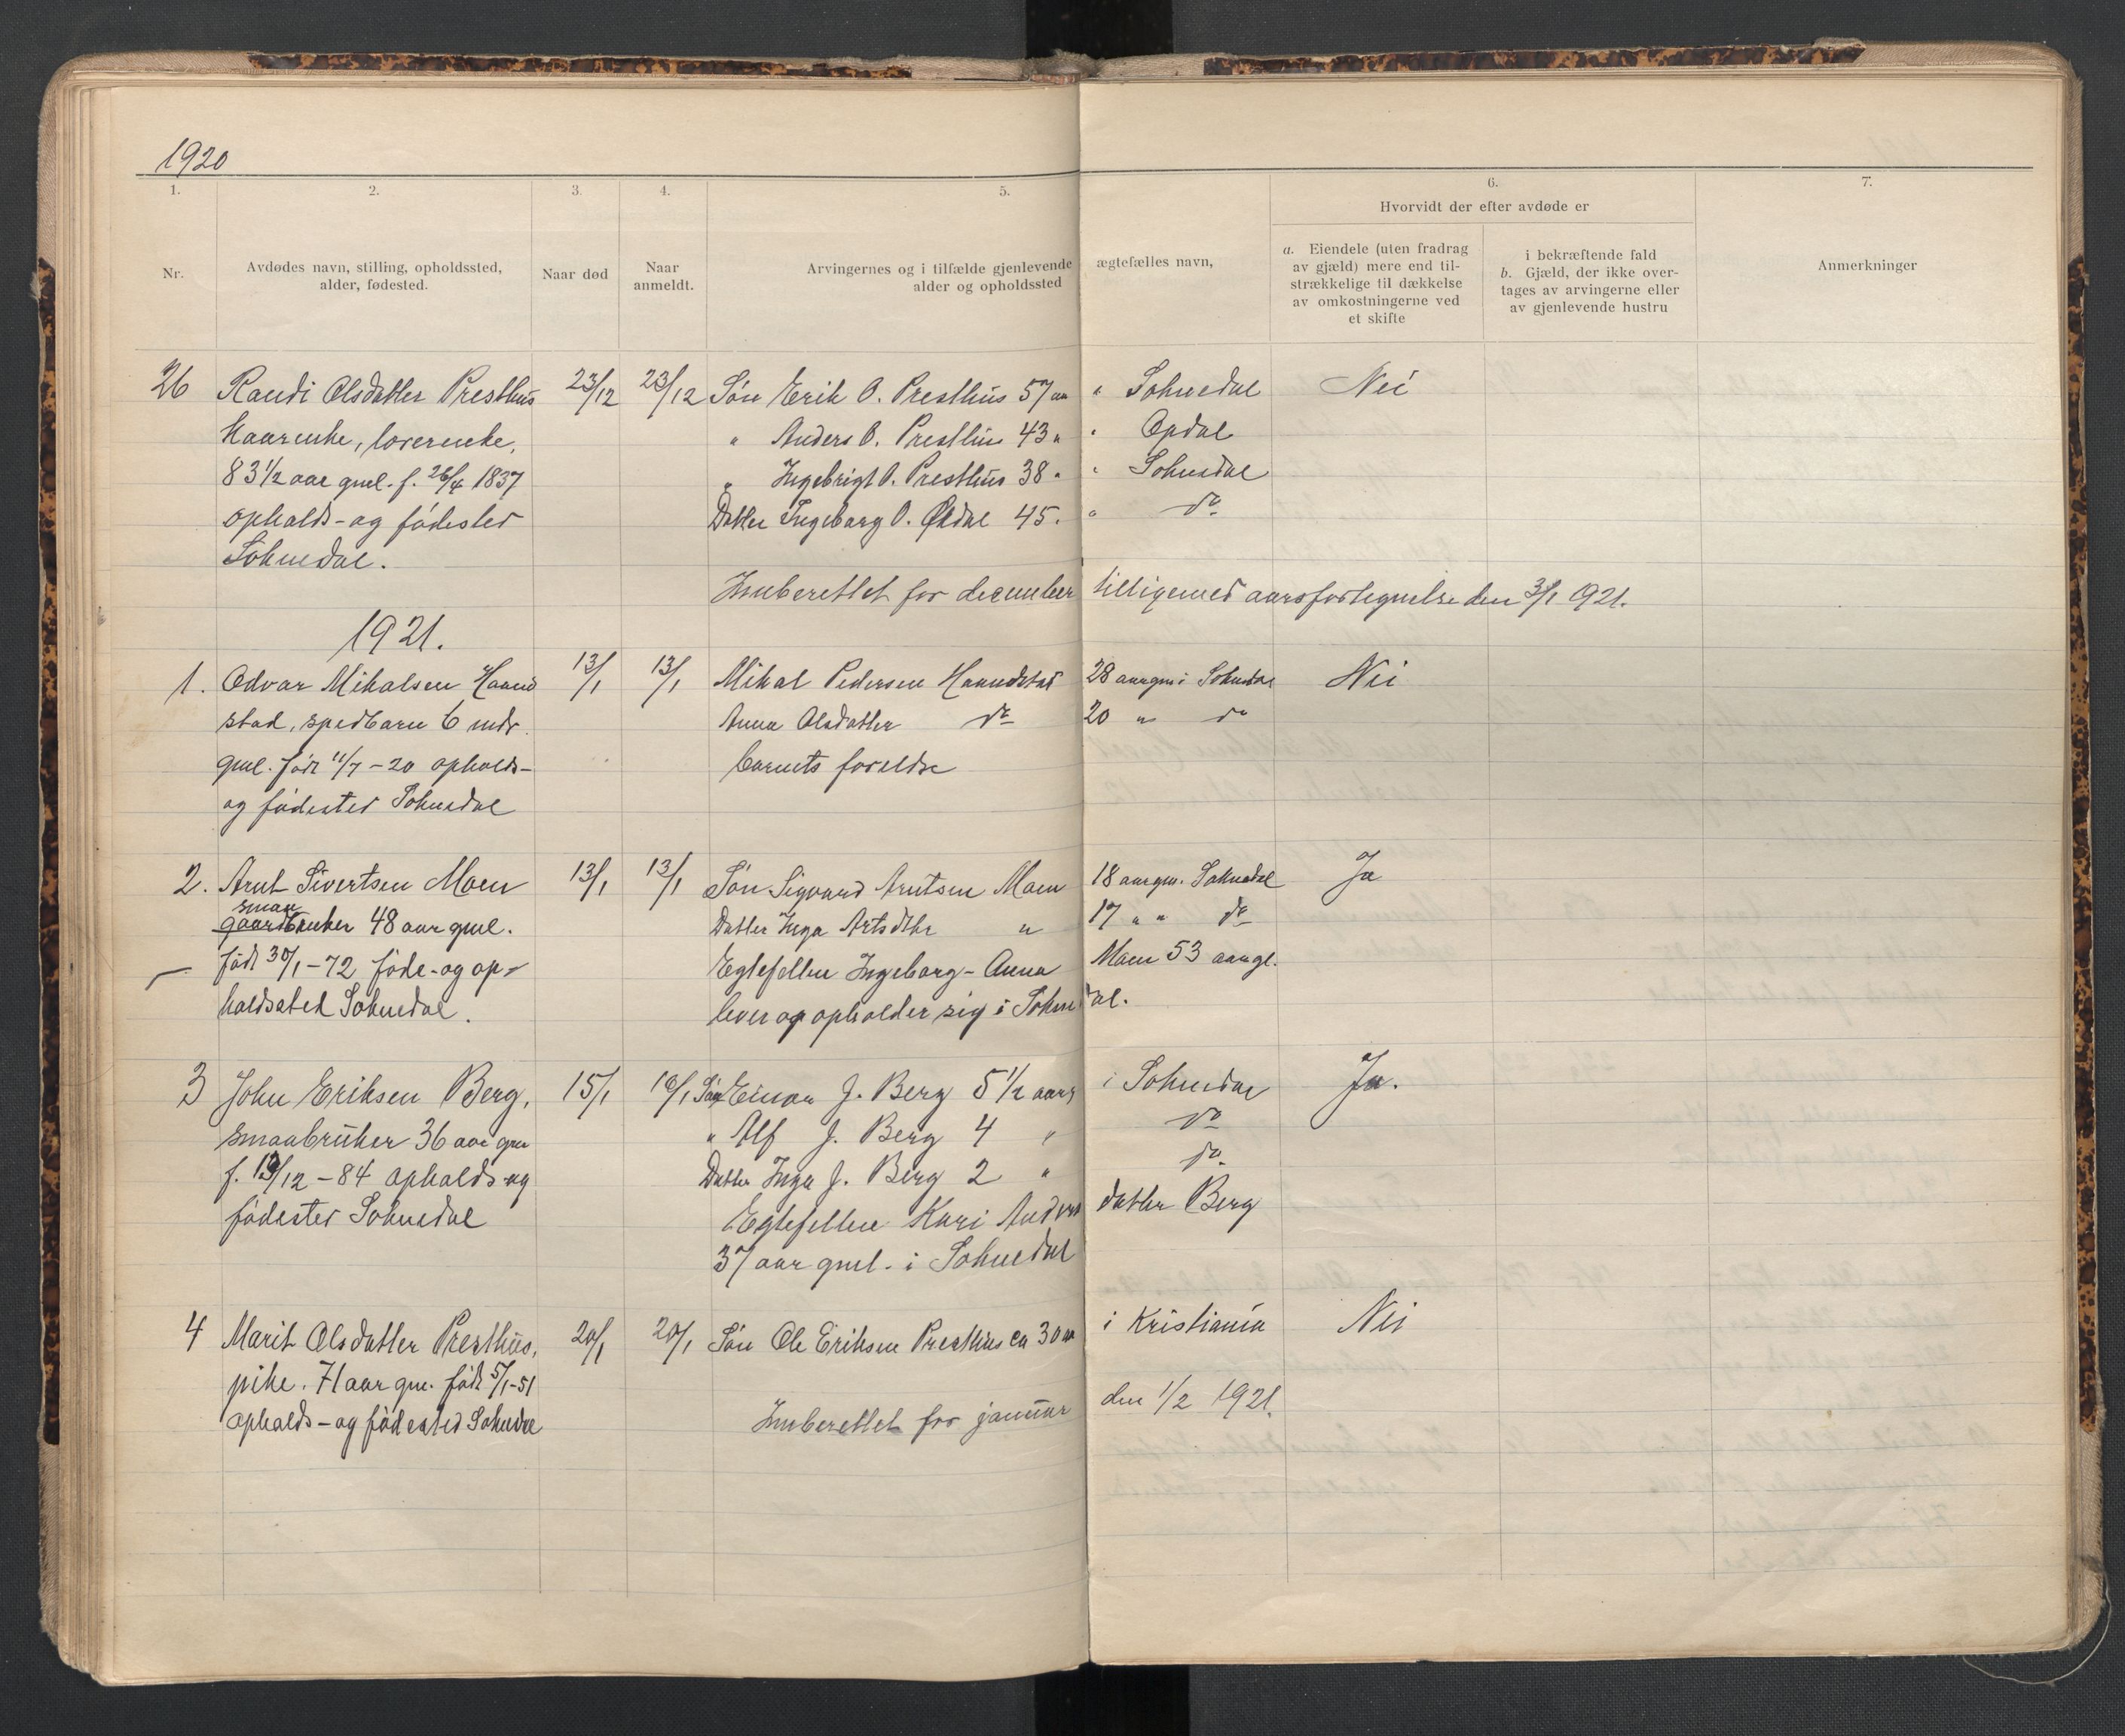 1920
1.
2.
3.
4.
5.
6.
7.
Nr.
Avdødes navn, stilling, opholdssted,
alder, fødested.
Naar død
Naar
anmeldt.
Arvingernes og i tilfælde gjenlevende ægtefælles navn,
alder og opholdssted
Hvorvidt der efter avdøde er
a. Eiendele (uten fradrag
av gjæld) mere end til-
strækkelige til dækkelse
av omkostningerne ved
et skifte
i bekræftende fald
b. Gjæld, der ikke over-
tages av arvingerne eller
av gjenlevende hustru
Anmerkninger
26 Randi Olsdatter Presthus 23/12 23/12 Søn Erik O. Presthus 57 aar " Soknedal Nei
Kaarenke, 
" Anders O. Presthus 43 " " Opdal
83 1/2 aar gml. f. 26/4 1837
" Ingebrigt O. Presthus 38 " " Soknedal
opholds- og fødested
Datter Ingeborg O. Øidal 45 " " do
Soknedal.
Innberettet for december tilligemed aarsfortegnelse den 3/1 1921.
1921.
1. Odvar Mikalsen Haand 13/1 13/1 Mikal Pedersen Haandstad 28 aar gm i Soknedal Nei
stad, spedbarn 6 mdr.
Anna Olsdatter do 20 " do
gml. født 11/7 - 20 opholds-
barnets foreldre
og fødested Soknedal
2. Arnt Sivertsen Moen 13/1 13/1 Søn Sigvard Arntsen Moen 18 aar gm. Soknedal Ja
smaa
gaardbruker 48 aar gml.
Datter Inga Artsdtr " 17 " " do
født 30/1 - 72 føde- og op-
Egtefellen Ingeborg-Anna Moen 53 aar gl.
holdssted Soknedal.
lever og opholder sig i Soknedal.
3 John Eriksen Berg, 15/1 16/1 Søn Einar J. Berg 5 1/2 aar i Soknedal Ja.
smaabruker 36 aar gm
" Alf J. Berg 4 " do
f. /12 - 84 opholds og
Datter Inga J. Berg 2 " do.
fødested Soknedal
Egtefellen Kari Anders datter Berg
37 aar gml. i Soknedal
4 Marit Olsdatter Presthus, 20/1 20/1 Søn Ole Eriksen Presthus ca 30 aar i Kristiania Nei
pike. 71 aar gm. født 5/1-51
opholds- og fødested Soknedal
Innberettet for januar den 1/2 1921.